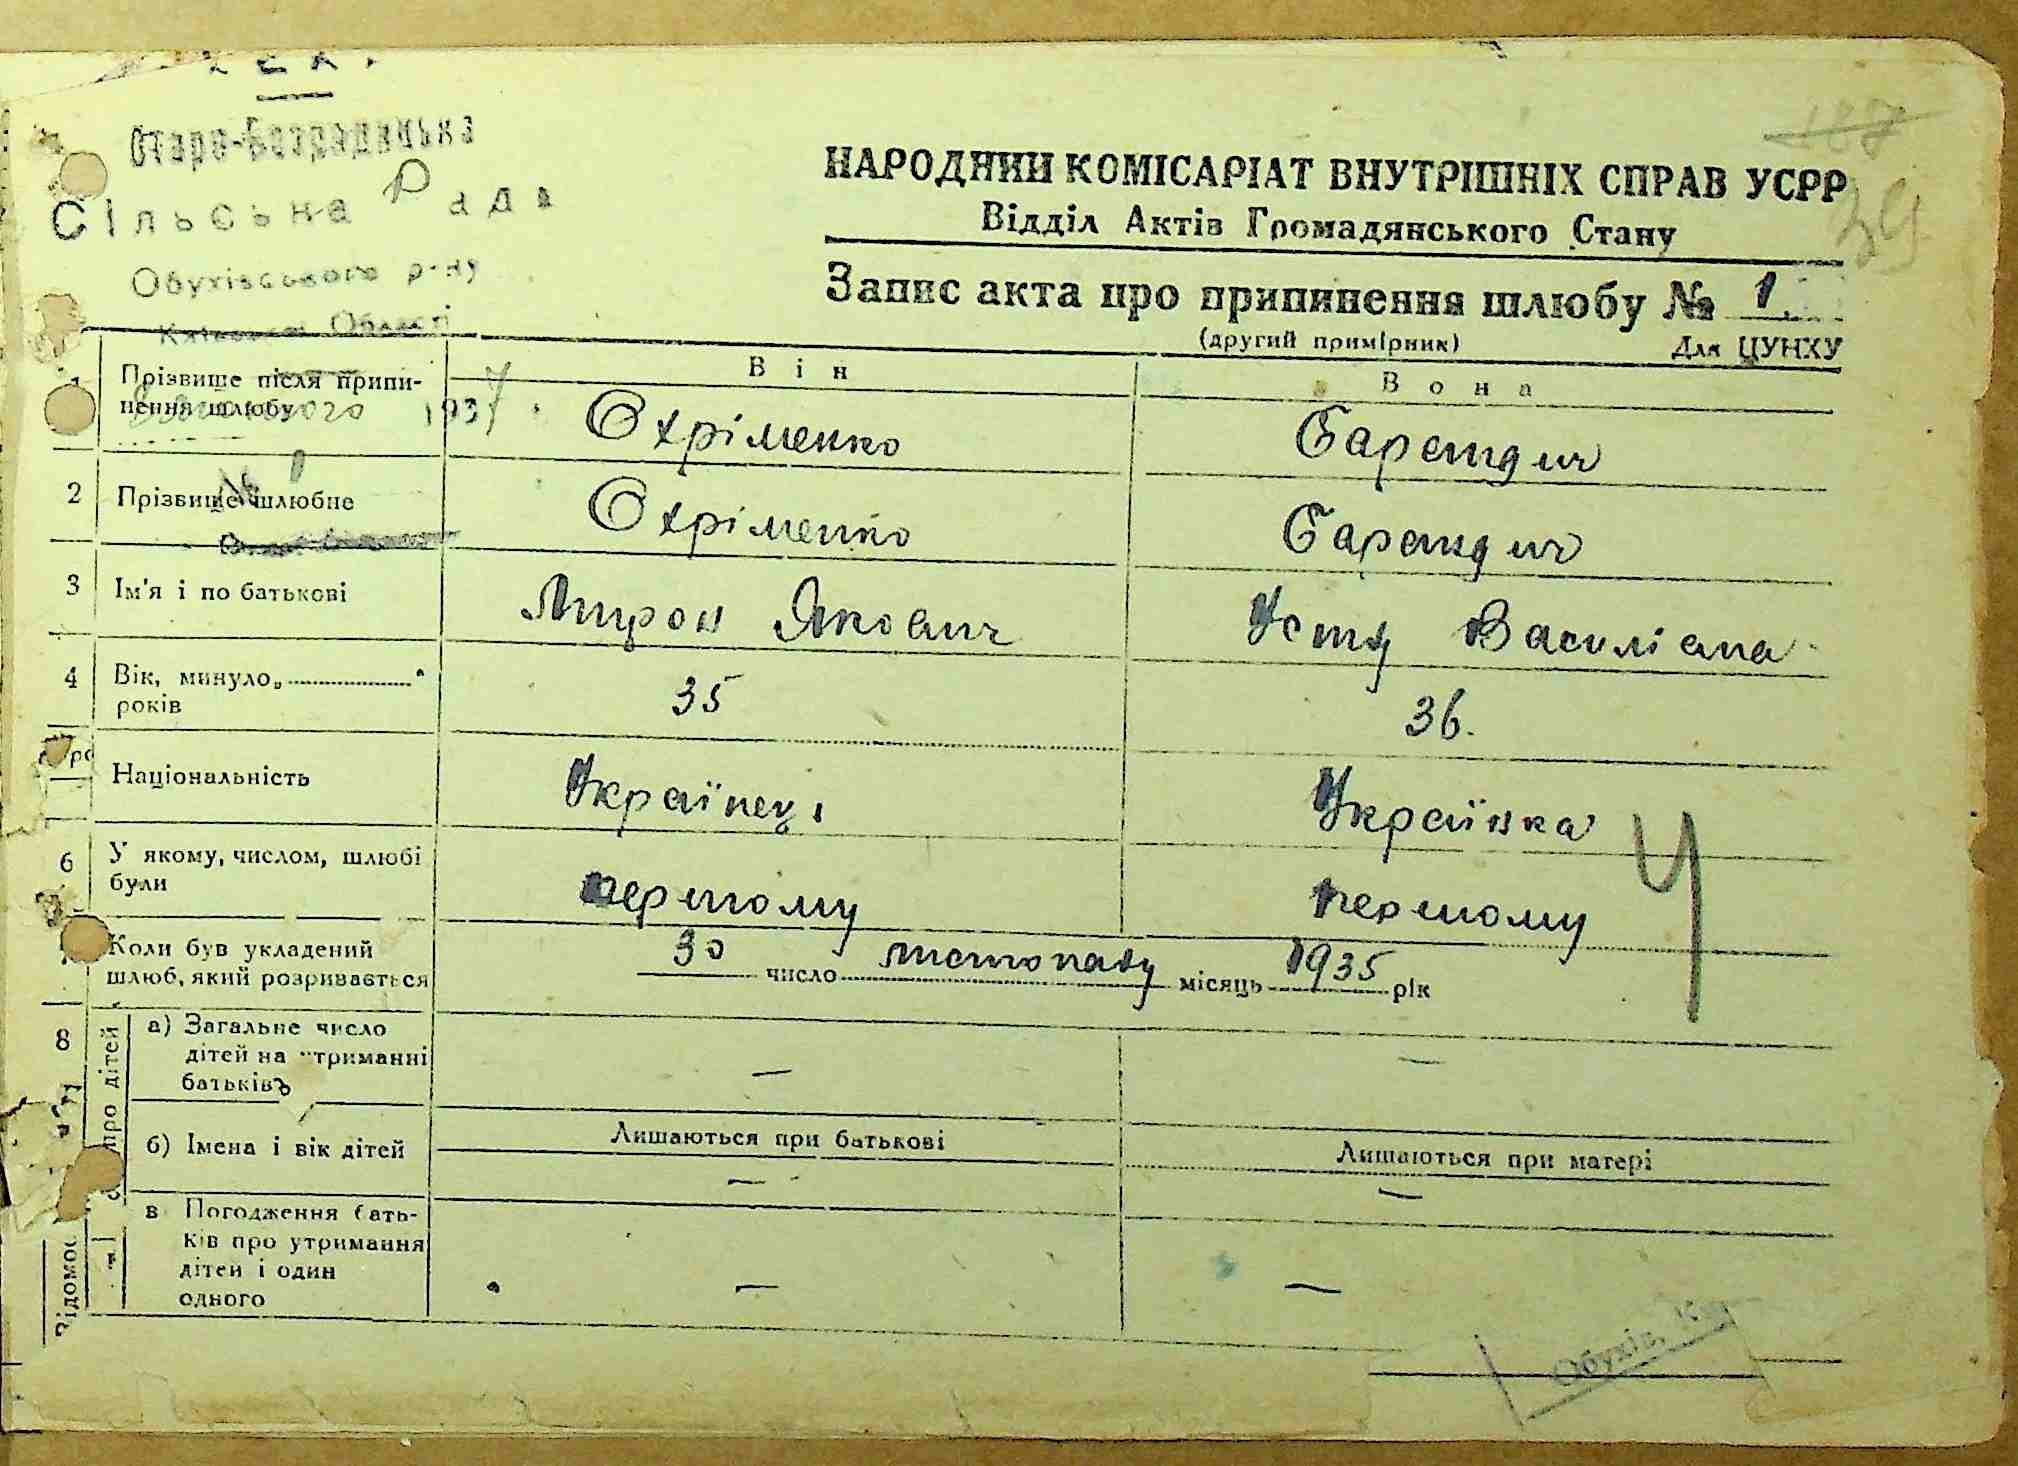 Старо-Безрадицька
Сільська Рада
Обухівського р-ну
Київської Області
1937
№ 1
187
39
НАРОДНИЙ КОМІСАРІАТ ВНУТРІШНІХ СПРАВ УСРР
Відділ Актів Громадянського Стану
Запис акта про припинення шлюбу № 1.
(другий примірник) Для ЦУНХУ
Він Вона
Прізвище після припинення шлюбу Охріменко
2 Прізвище шлюбне Охріменко
3 Ім'я і по батькові Мирон Якович Устя Василівна
4 Вік, минуло „........" років 35 36.
Національність Українець Українка
6 У якому, числом, шлюбі були першому першому
Коли був укладений шлюб, який розривається 30 число листопаду місяць 1935 рік
8 про дітей
а) Загальне число дітей на утриманні батьків — —
б) Імена і вік дітей Лишаються при батькові Лишаються при матері
— —
в Погодження батьків про утримання дітей і один одного — —
Відомос
Обухів,